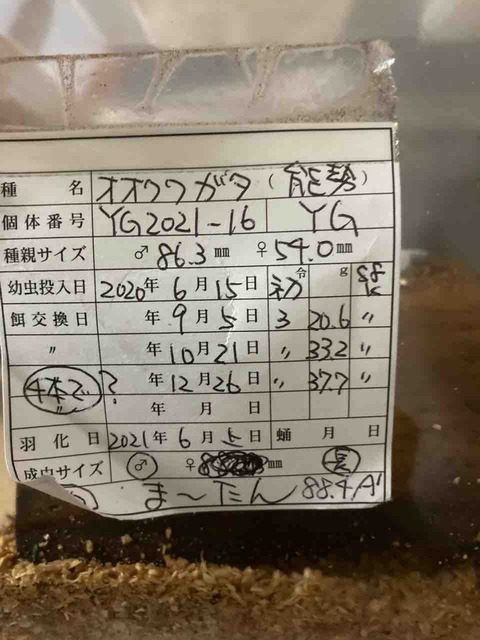 種名 オオクワガタ(能勢)
個体番号 YG2021-16 YG
種親サイズ ♂86.3mm ♀54.0mm
幼虫投入日 2020年6月15日 初令 g S8 K
餌交換日 年9月5日 3 20.6 〃
〃 年10月21日 〃 33.2 〃
4本で? 年12月26日 〃 37.7 〃
〃 年 月 日
羽化日 2021年6月5日 蛹 月 日
成虫サイズ ♂ ♀ mm 長
ま〜たん 88.4A'